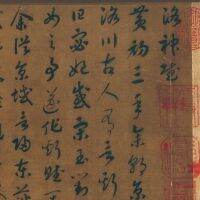 洛神賦
黃初三年余朝京
洛川古人有言斯
曰宓妃感宋玉對
女之事遂作斯賦
余從京域言歸東藩